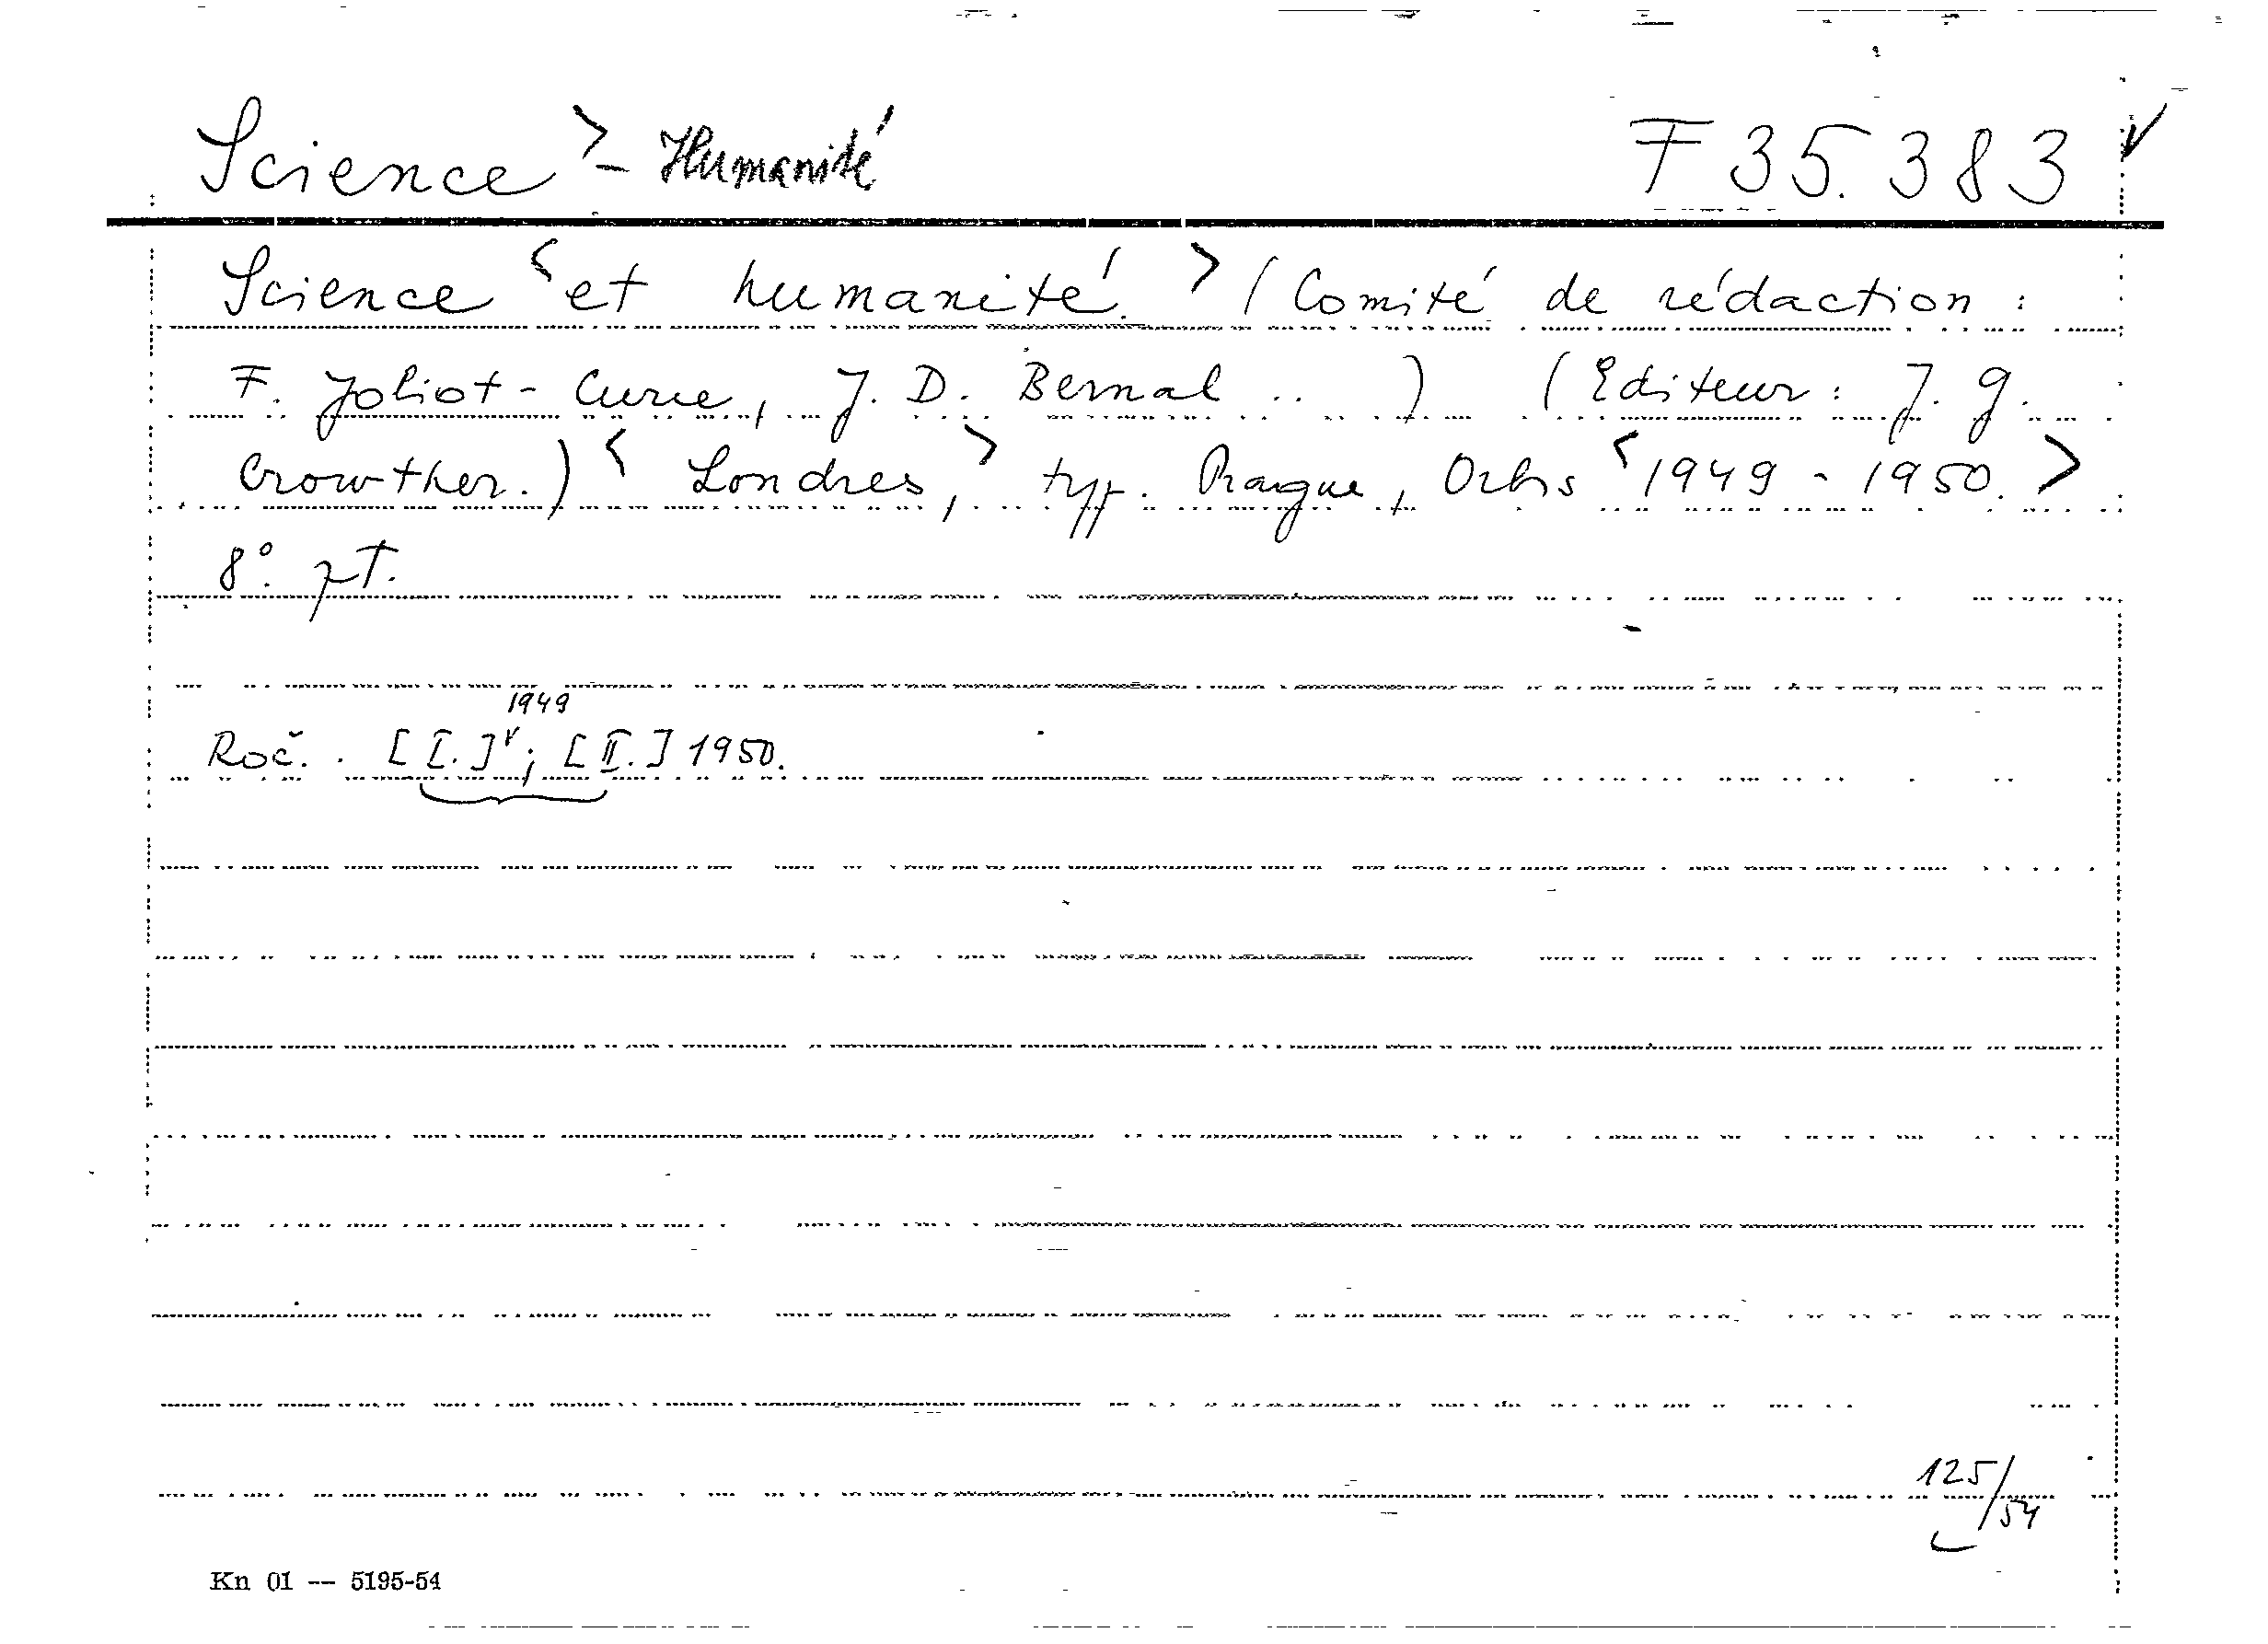 Science > - Humanité F 35.383 ✓
Science < et humanité. > (Comité de rédaction :
F. Joliot-Curie, J. D. Bernal .. ) (Editeur : J. G.
Crowther.) < Londres, > typ. Prague, Orbis < 1949 - 1950. >
8°. pt.
1949
Roč. . [I.]; [II.] 1950.
125/54
Kn 01 -- 5195-54